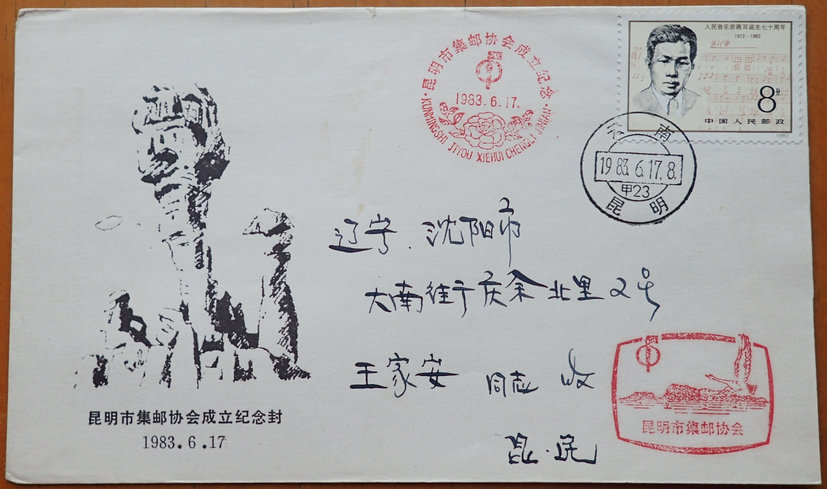 昆明市集邮协会成立纪念
1983.6.17.
KUNMINGSHI JIYOU XIEHUI CHENGLI JINIAN
人民音乐家聂耳诞生七十周年
1912-1982
8分
中国人民邮政
1982
云南
1983.6.17.8.
甲23
昆明
辽宁.沈阳市
大南街庆余北里2号
王家安 同志 收
昆.民
昆明市集邮协会
昆明市集邮协会成立纪念封
1983.6.17